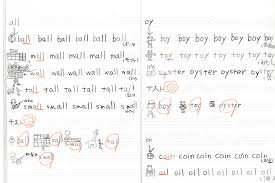 all
ball ball ball ball ball ball
mall mall mall mall mall
wall wall wall wall wall
tall tall tall tall tall tall
small small small small small
テスト
ball
small
oy
boy boy boy boy boy boy
toy toy toy toy toy toy
oyster oyster oyster oyster
テスト
boy toy oyster
oi
coin coin coin coin coin
oil oil oil oil oil oil oil